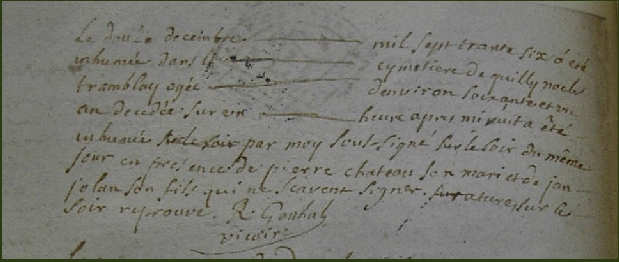 Le douze decembre mil sept trante six a été
inhumée dans le cymetiere de quilly noele
tramblay agée d'environ soixante et un
an decedée sur une heure apres minuit a été
inhumée par moy sous signé sur le soir du même
jour en presence de pierre chateau son mari et de jan
jolan son fils qui ne scavent signer. rature sur le
soir reprouvé. R. Gouhal
vicaire